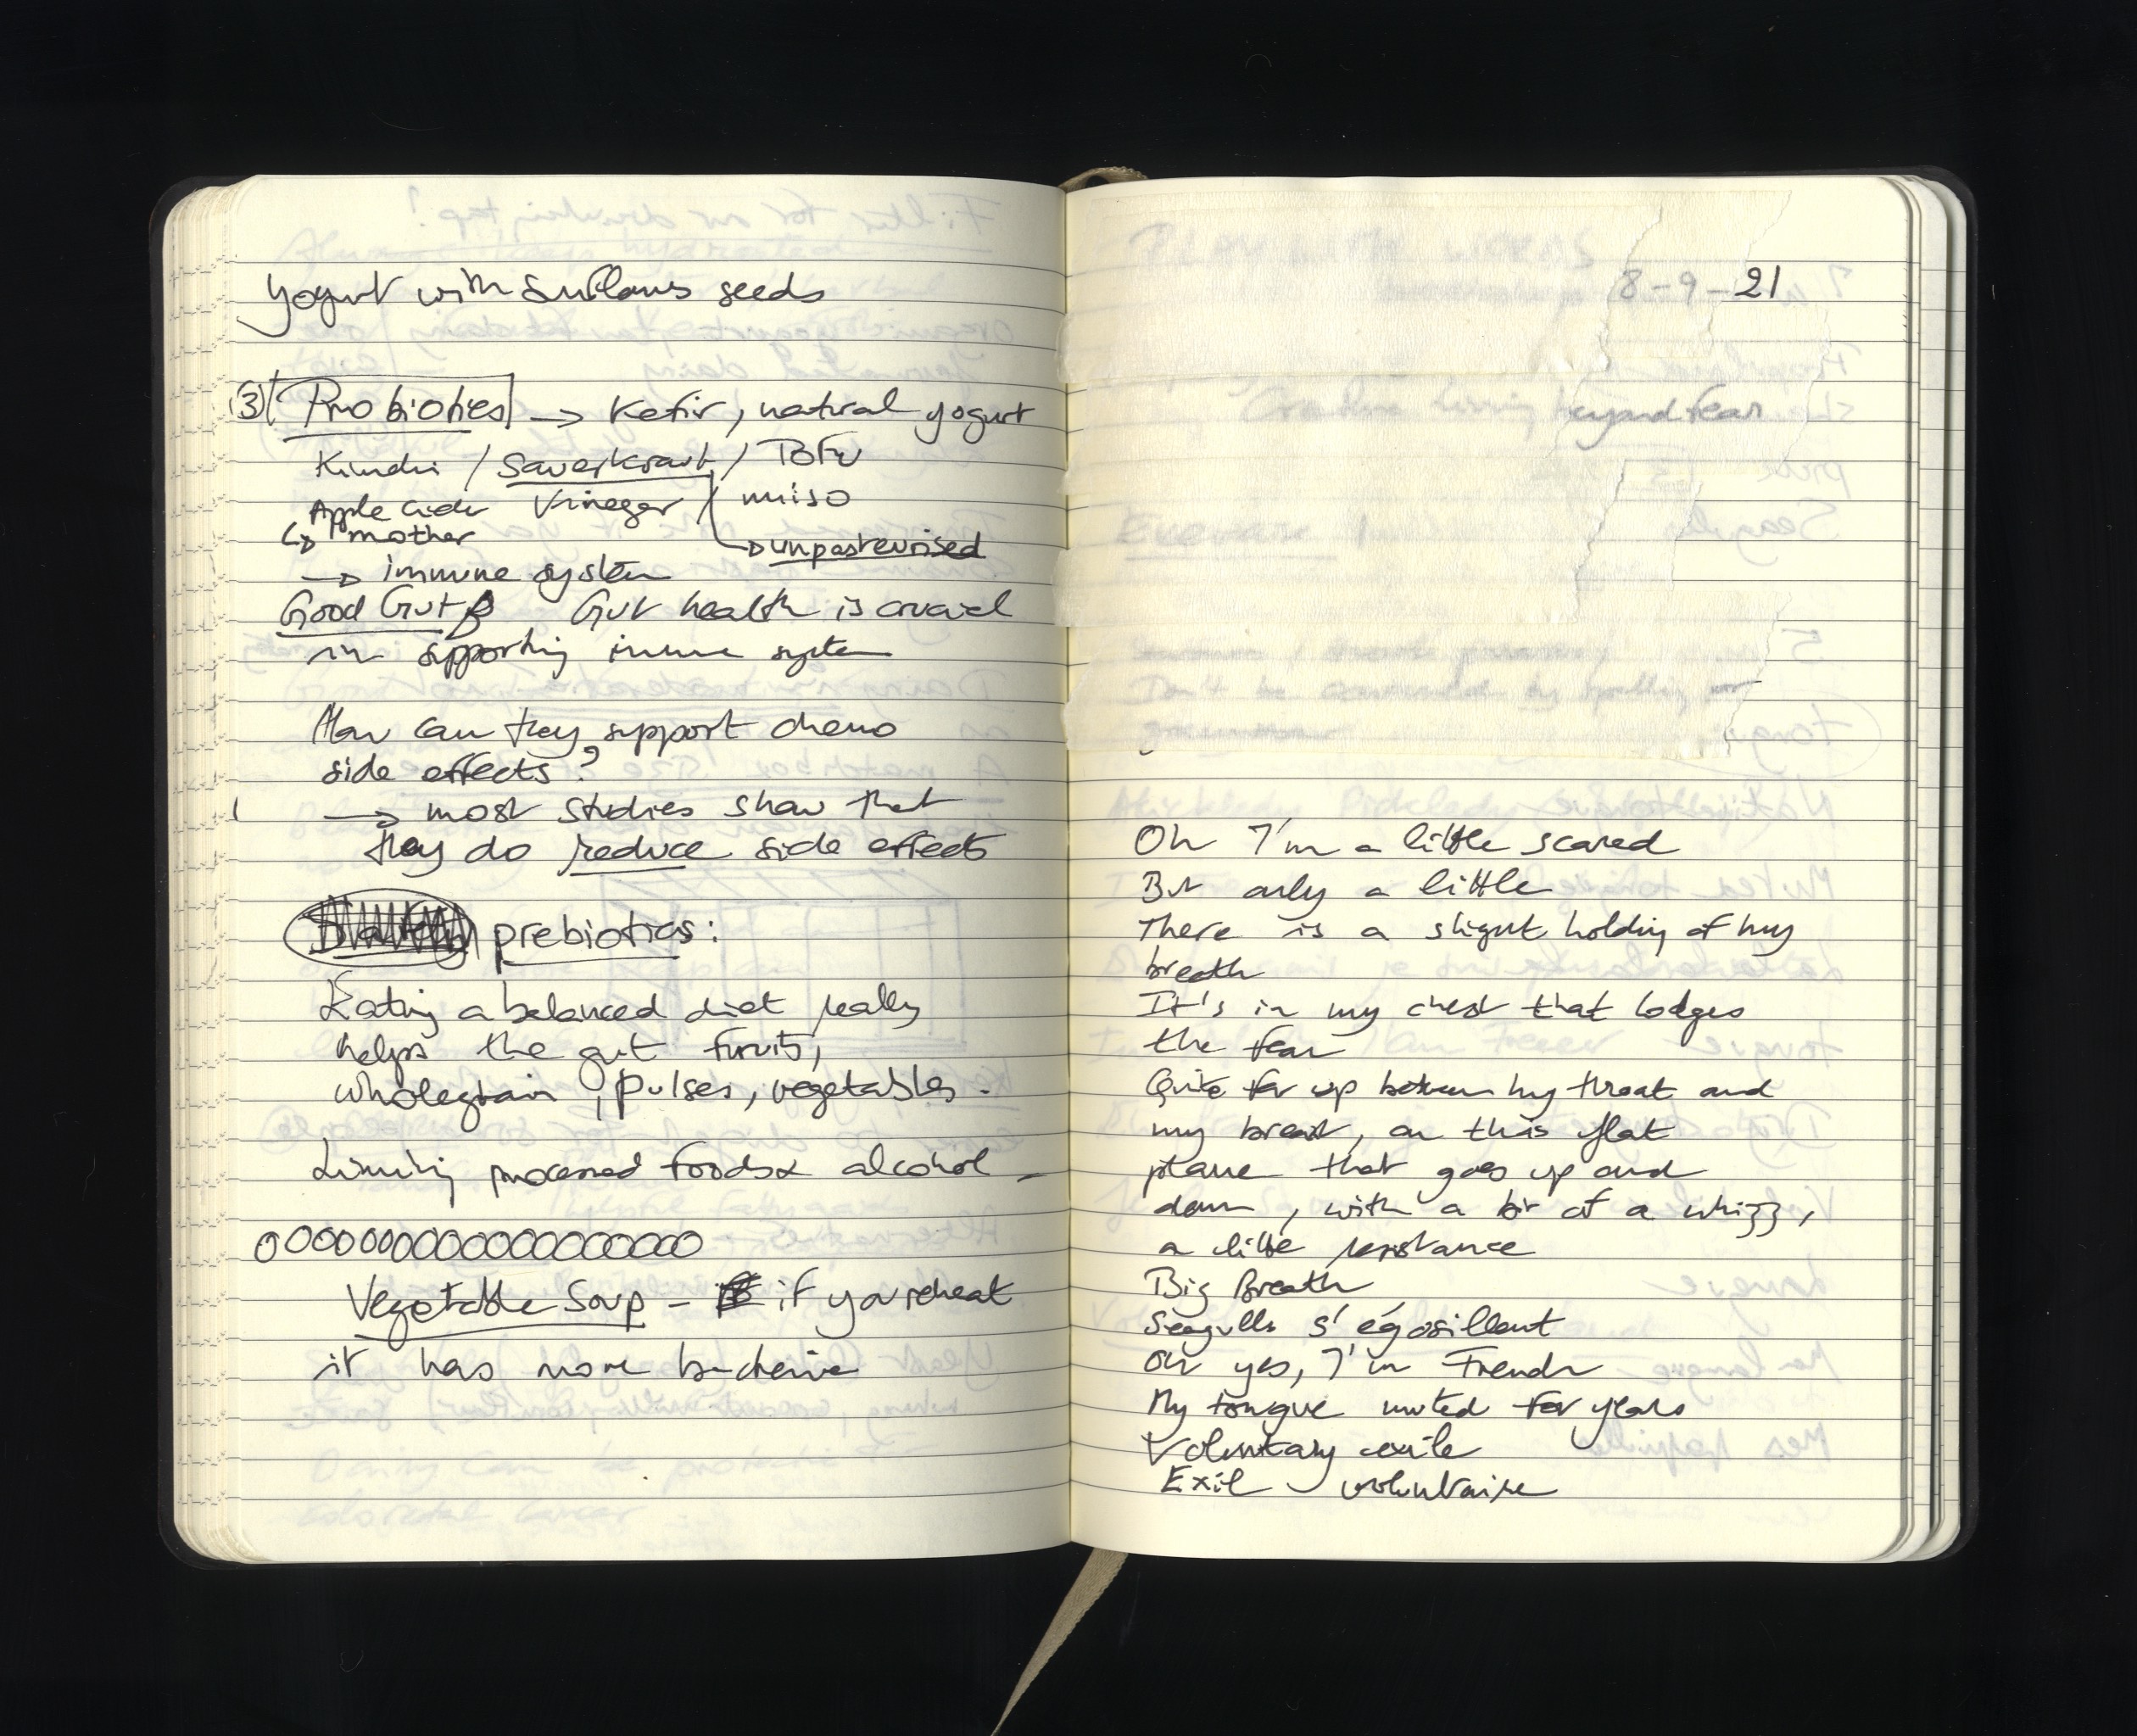 yogurt with sunflows seeds
③ Probiotics → Kefir, natural yogurt
Kimchi / Sauerkraut / TOFU
Apple cider Vinegar / miso
↳ mother
→ unpasteurised
→ immune system
Good Gut Gut health is crucial
in supporting immune system
How can they support chemo
side effects?
→ most studies show that
they do reduce side effects
prebiotics:
Eating a balanced diet really
helps the gut fruits,
wholegrain, pulses, vegetables.
Limiting processed foods & alcohol -
Vegetable Soup - if you reheat
it has more bacteria
PLAY WITH WORDS
8-9-21
beyond fear
Don't be concerned by spelling or
grammar
Oh I'm a little scared
But only a little
There is a slight holding of my
breath
It's in my chest that lodges
the fear
Quite far up between my throat and
my breast, on this flat
plane that goes up and
down, with a bit of a whizz,
a little resistance
Big Breath
Seagulls s'égosillent
Oh yes, I'm French
My tongue muted for years
Voluntary exile
Exil volontaire